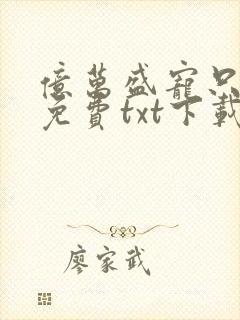 億萬盛寵只
免費txt下載
廖家武